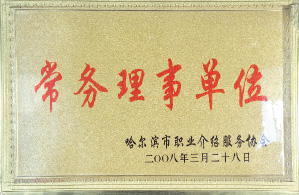 常务理事单位
哈尔滨市职业介绍服务协会
二〇〇八年三月二十八日